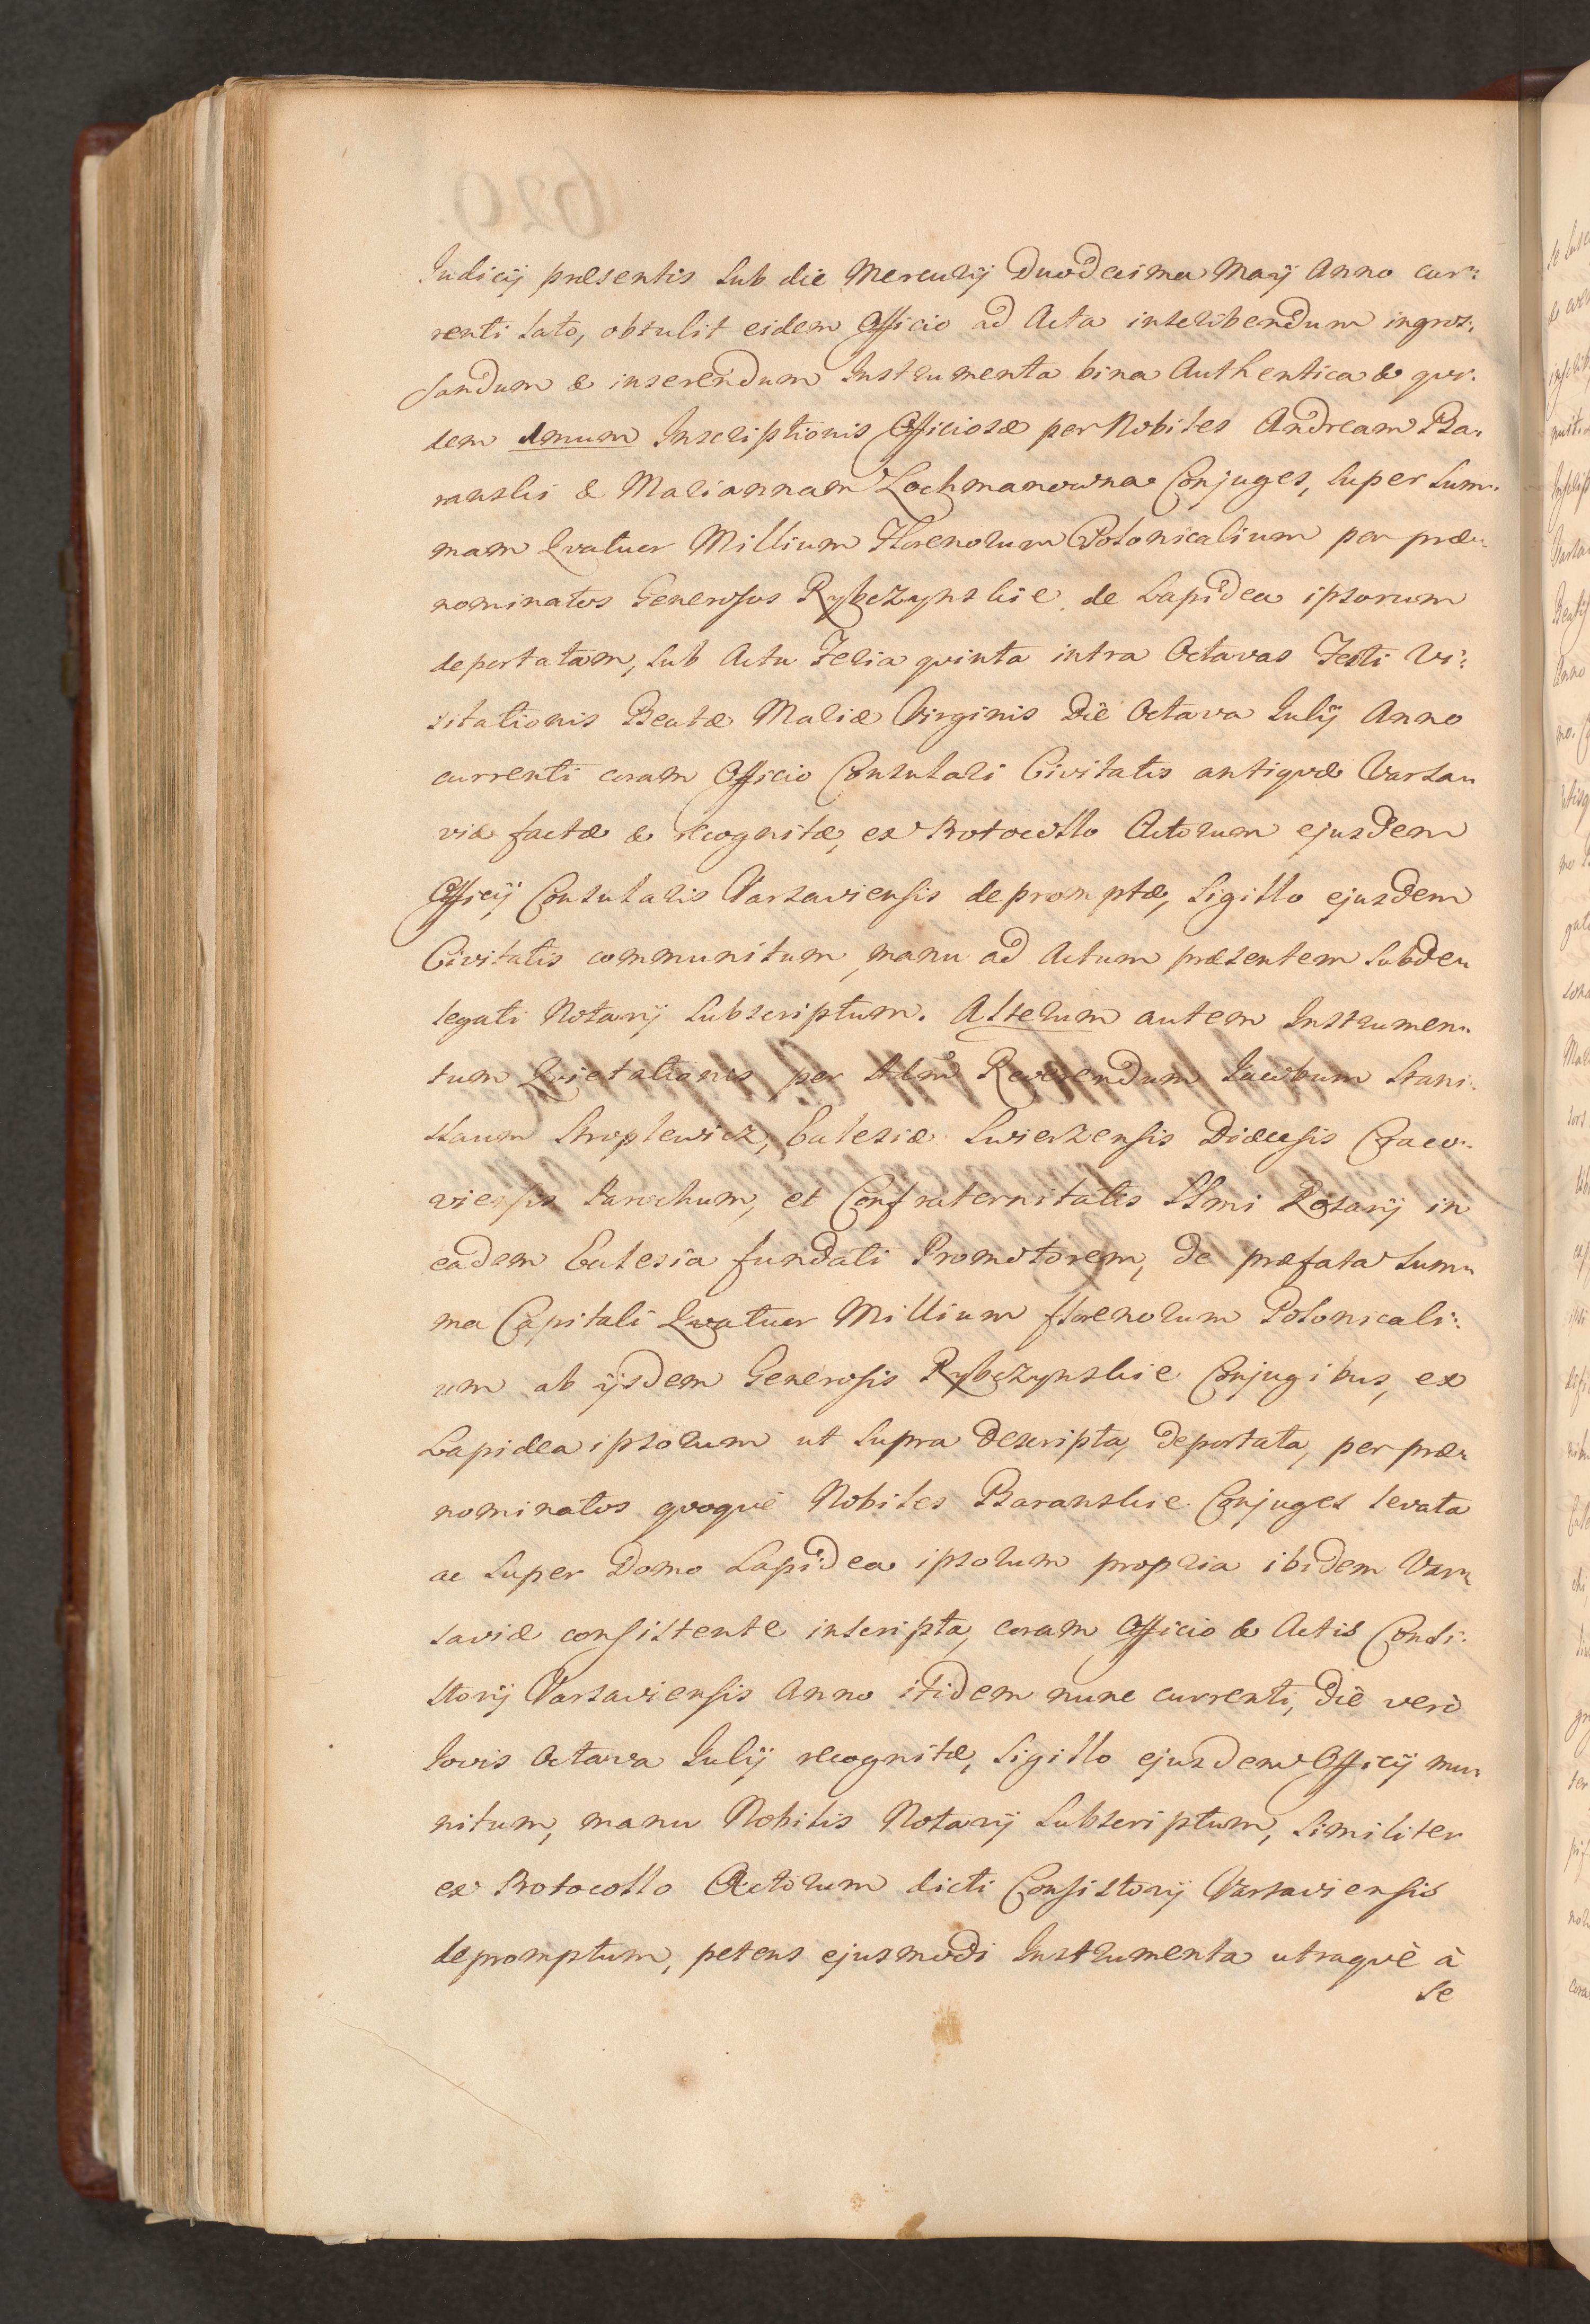 Judicij præsentis sub die Mercurij Duodecima Maij Anno cur:
renti lato, obtulit eidem Officio ad Acta inscribendum ingros:
sandum & inserendum Instrumenta bina Authentica & qvi:
dem 1mum Inscriptionis Officiosæ per Nobiles Andream Ba:
ranski & Mariannam Lochmanowna Conjuges, super Sum:
mam Qvatuor Millium Florenorum Polonicalium per præ:
nominatos Generosos Rybczynskie de Lapidea ipsorum
deportatam, sub Actu Feria qvinta intra Octavas Festi Vi:
sitationis Beatæ Mariæ Virginis Die Octava Julij Anno
currenti coram Officio Consulari Civitatis antiqvæ Varsa:
viæ factæ & recognitæ, ex Protocollo Actorum ejusdem
Officij Consularis Varsaviensis depromptæ, Sigillo ejusdem
Civitatis communitum, manu ad Actum præsentem Subde:
legati Notarij subscriptum. Alterum autem Instrumen:
tum Qvietationis per Adm Reverendum Jacobum Stani:
slaum Skoplewicz, Eclesiæ Swierzensis Diæcesis Craco:
viensis Parochum, et Confraternitatis SSmi Rosarij in
eadem Eclesia fundati Promotorem, de præfata Sum:
ma Capitali Qvatuor Millium florenorum Polonicali:
um ab ijsdem Generosis Rybczynskie Conjugibus, ex
Lapidea ipsorum ut supra descripta, deportata, per præ:
nominatos qvoqvè Nobiles Baranskie Conjuges levata
ac super Domo Lapidea ipsorum propria ibidem Var:
saviæ consistente inscripta, coram Officio & Actis Consi:
storij Varsaviensis Anno itidem nunc currenti, die verò
Jovis Octava Julij recognitæ, Sigillo ejusdem Officij mu:
nitum, manu Nobilis Notarij subscriptum, similiter
ex Protocollo Actorum dicti Consistorij Varsaviensis
depromptum, petens ejusmodi Instrumenta utraqvè à
se